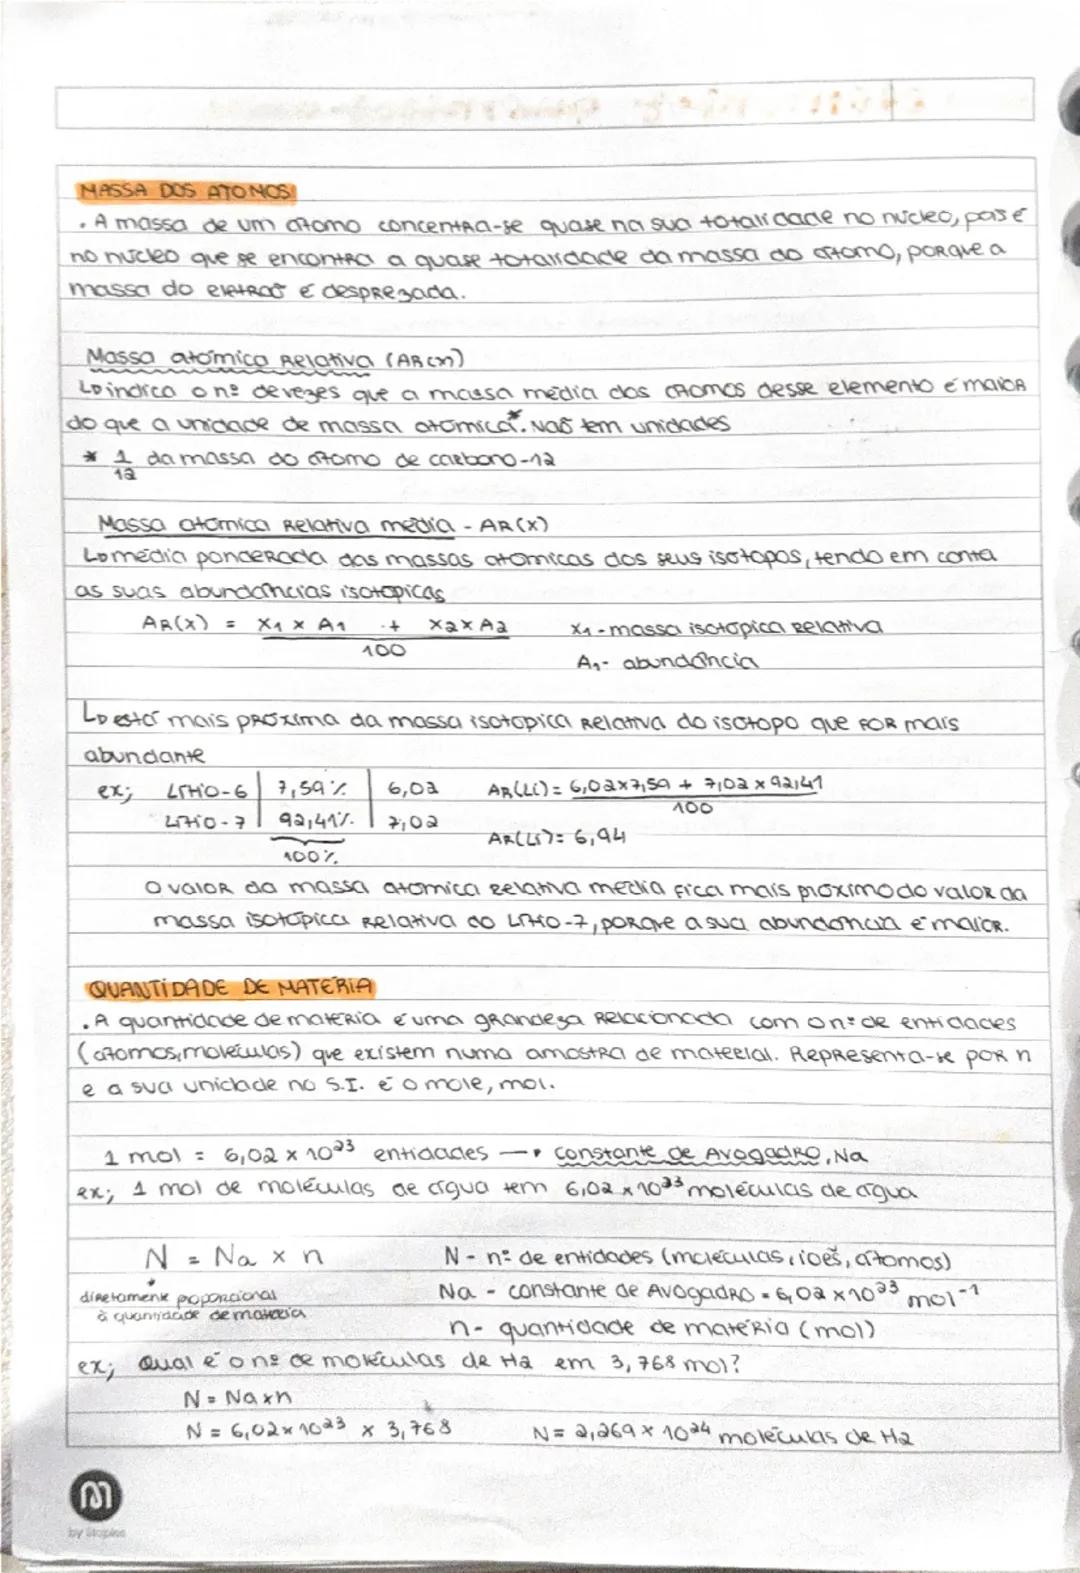 MASSA DOS ATOMOS
. A massa de um átomo concentra-se quase na sua totalidade no núcleo, pois é
no núcleo que se encontra a quase totalidade da massa do átomo, porque a
massa do eletrão é desprezada.
Massa atómica Relativa (AR(x))
↳ indica o nº de vezes que a massa média dos átomos desse elemento é maior
do que a unidade de massa atómica*. Não tem unidades
* 1/12 da massa do átomo de carbono-12
Massa atómica Relativa média - AR(X)
↳ média ponderada das massas atómicas dos seus isótopos, tendo em conta
as suas abundâncias isotópicas
AR(X) = X1 x A1 + X2 x A2 X1 - massa isotópica relativa
100
A1 - abundância
↳ está mais próxima da massa isotópica relativa do isótopo que for mais
abundante
ex; Lítio-6 7,59% 6,02 AR(Li) = 6,02x7,59 + 7,02 x 92,41
100
Lítio-7 92,41% 7,02
AR(Li) = 6,94
100%
O valor da massa atómica relativa média fica mais próximo do valor da
massa isotópica relativa do Lítio-7, porque a sua abundância é maior.
QUANTIDADE DE MATÉRIA
. A quantidade de matéria é uma grandeza relacionada com o nº de entidades
(átomos, moléculas) que existem numa amostra de material. Representa-se por n
e a sua unidade no S.I. é o mole, mol.
1 mol = 6,02 x 10²³ entidades → constante de Avogadro, Na
ex; 1 mol de moléculas de água tem 6,02 x 10²³ moléculas de água
N = Na x n N - nº de entidades (moléculas, iões, átomos)
diretamente proporcional
à quantidade de matéria
Na - constante de Avogadro = 6,02 x 10²³ mol⁻¹
n - quantidade de matéria (mol)
ex; Qual é o nº de moléculas de H2 em 3,768 mol?
N = Na x n
N = 6,02 x 10²³ x 3,768 N = 2,269 x 10²⁴ moléculas de H2
by Staples